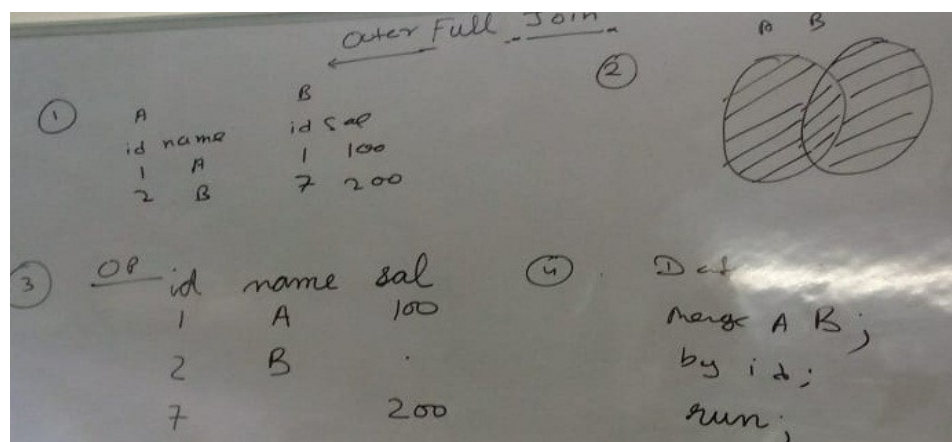 Outer Full Join
①
A
id name
1 A
2 B
B
id sal
1 100
7 200
②
A B
③ OP
id name sal
1 A 100
2 B .
7 200
④
merge A B;
by id;
run;